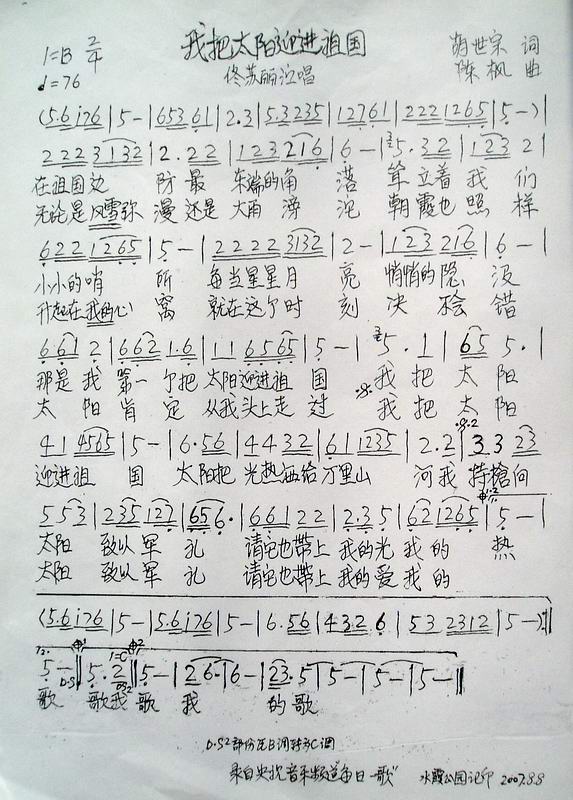 我把太阳迎进祖国
1=B 2/4
胡世宗 词
♩=76
佟苏丽泣唱
陈枫 曲
(5.6 i76 | 5 - | 653 61 | 2.3 | 5.3235 | 12761 | 222 1265 | 5 - ) |
222 3132 | 2.22 | 123 216 | 6 - | 5.32 | 123 2 |
在祖国边 防最 东端的角 落 耸立着我 们
无论是风雪弥 漫还是 大雨滂 沱 朝霞也照 样
622 1265 | 5 - | 2222 3132 | 2 - | 123 216 | 6 - |
小小的哨 所 每当星星月 亮 悄悄的隐 没
升起在我的心 窝 就在这个时 刻 决不会 错
661 2 | 662 1.6 | 11 6565 | 5 - | 5. 1 | 65 5. |
那是我 第一个把 太阳迎进祖 国 我把太阳
太阳肯定 从我头上走过 我把太阳
41 4565 | 5 - | 6.56 | 4432 | 61 1235 | 2.2 | 33 23 |
迎进祖 国 太阳把 光热洒给万里山 河我 持槍向
553 | 235 127 | 656. | 661 22 | 2.35 | 62 1265 | 5 - |
太阳 致以军 礼 请它也带上 我的光 我的 热
太阳 致以军 礼 请它也带上 我的爱 我的
(5.6 i76 | 5 - | 5.6 i76 | 5 - | 6.56 | 4326 | 53 2312 | 5 - ) :||
5 - || 5. 2 || 5 - | 26. | 6 - | 23.5 | 5 - | 5 - | 5 - ||
D.S 1=C D.S2
歌 歌我 歌 我 的歌
D.S2部份在B调转为C调
录自央视音乐频道"每日一歌" 水霞公园记印 2007.8.8